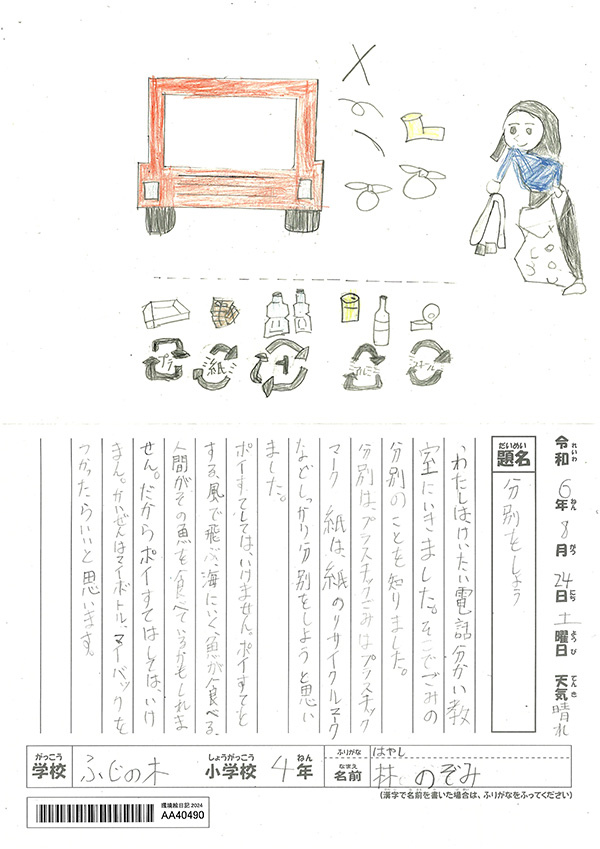 プラ
紙
1
アルミ
スチール
令和6年8月24日土曜日 天気晴れ
れいわ ねん がつ にち ようび てんき
だいめい
題名
分別をしよう
わたしはけいたい電話分かい教
室にいきました。そこでごみの
分別のことを知りました。
分別はプラスチックごみはプラスチック
マーク 紙は紙のリサイクルマーク
などしっかり分別をしようと思い
ました。
ポイすてしてはいけません。ポイすてと
する、風で飛ぶ、海にいく、魚が食べる、
人間がその魚を食べているかもしれま
せん。だからポイすてはしてはいけ
ません。かいぜんはマイボトル、マイバックを
つかったらいいと思います。
がっこう
学校
ふじの木
しょうがっこう
小学校
4
ねん
年
ふりがな
はやし
なまえ
名前
林 のぞみ
(漢字で名前を書いた場合は、ふりがなをふってください)
環境絵日記2024
AA40490